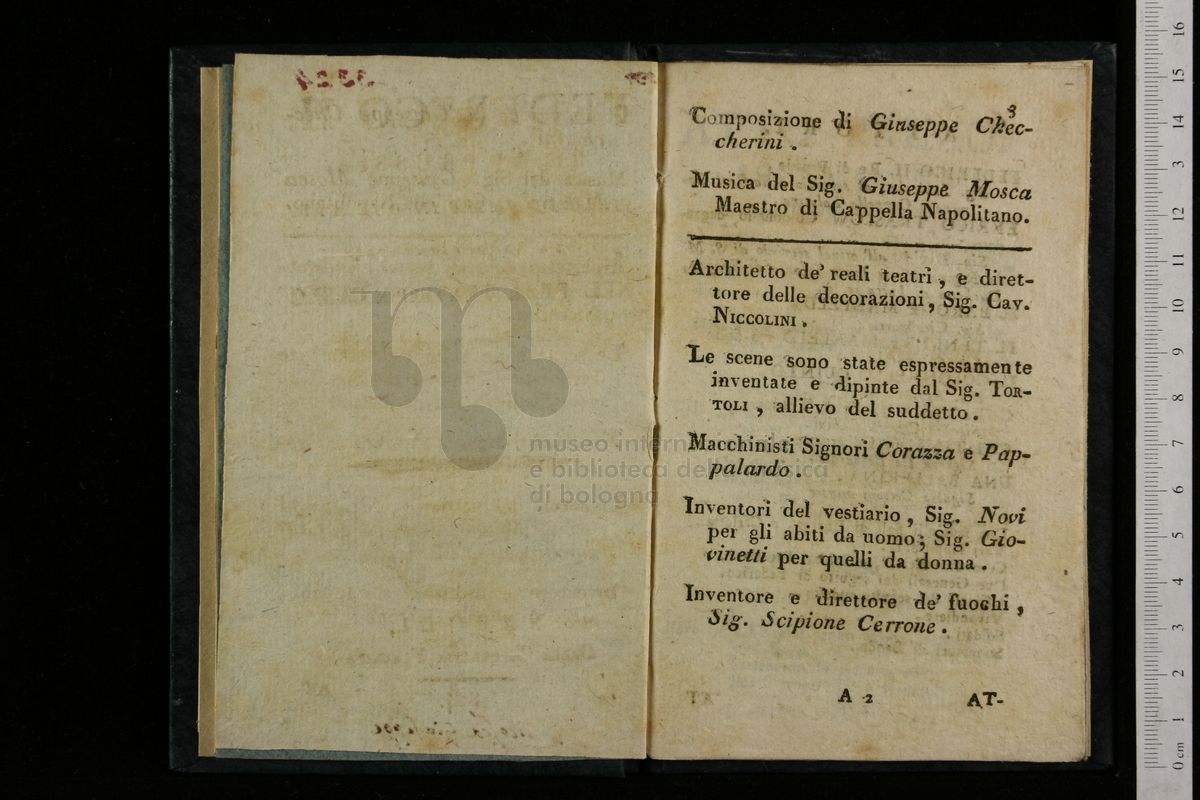 3
Composizione di Giuseppe Chec-
cherini .
Musica del Sig. Giuseppe Mosca
Maestro di Cappella Napolitano.
Architetto de' reali teatri , e diret-
tore delle decorazioni , Sig. Cav.
NICCOLINI .
Le scene sono state espressamente
inventate e dipinte dal Sig. TOR-
TOLI , allievo del suddetto .
Macchinisti Signori Corazza e Pap-
palardo .
Inventori del vestiario , Sig. Novi
per gli abiti da uomo ; Sig. Gio-
vinetti per quelli da donna .
Inventore e direttore de' fuochi ,
Sig. Scipione Cerrone .
A 2 AT-
museo
e biblioteca della musica
di bologna
0 cm 1 2 3 4 5 6 7 8 9 10 11 12 13 14 15 16